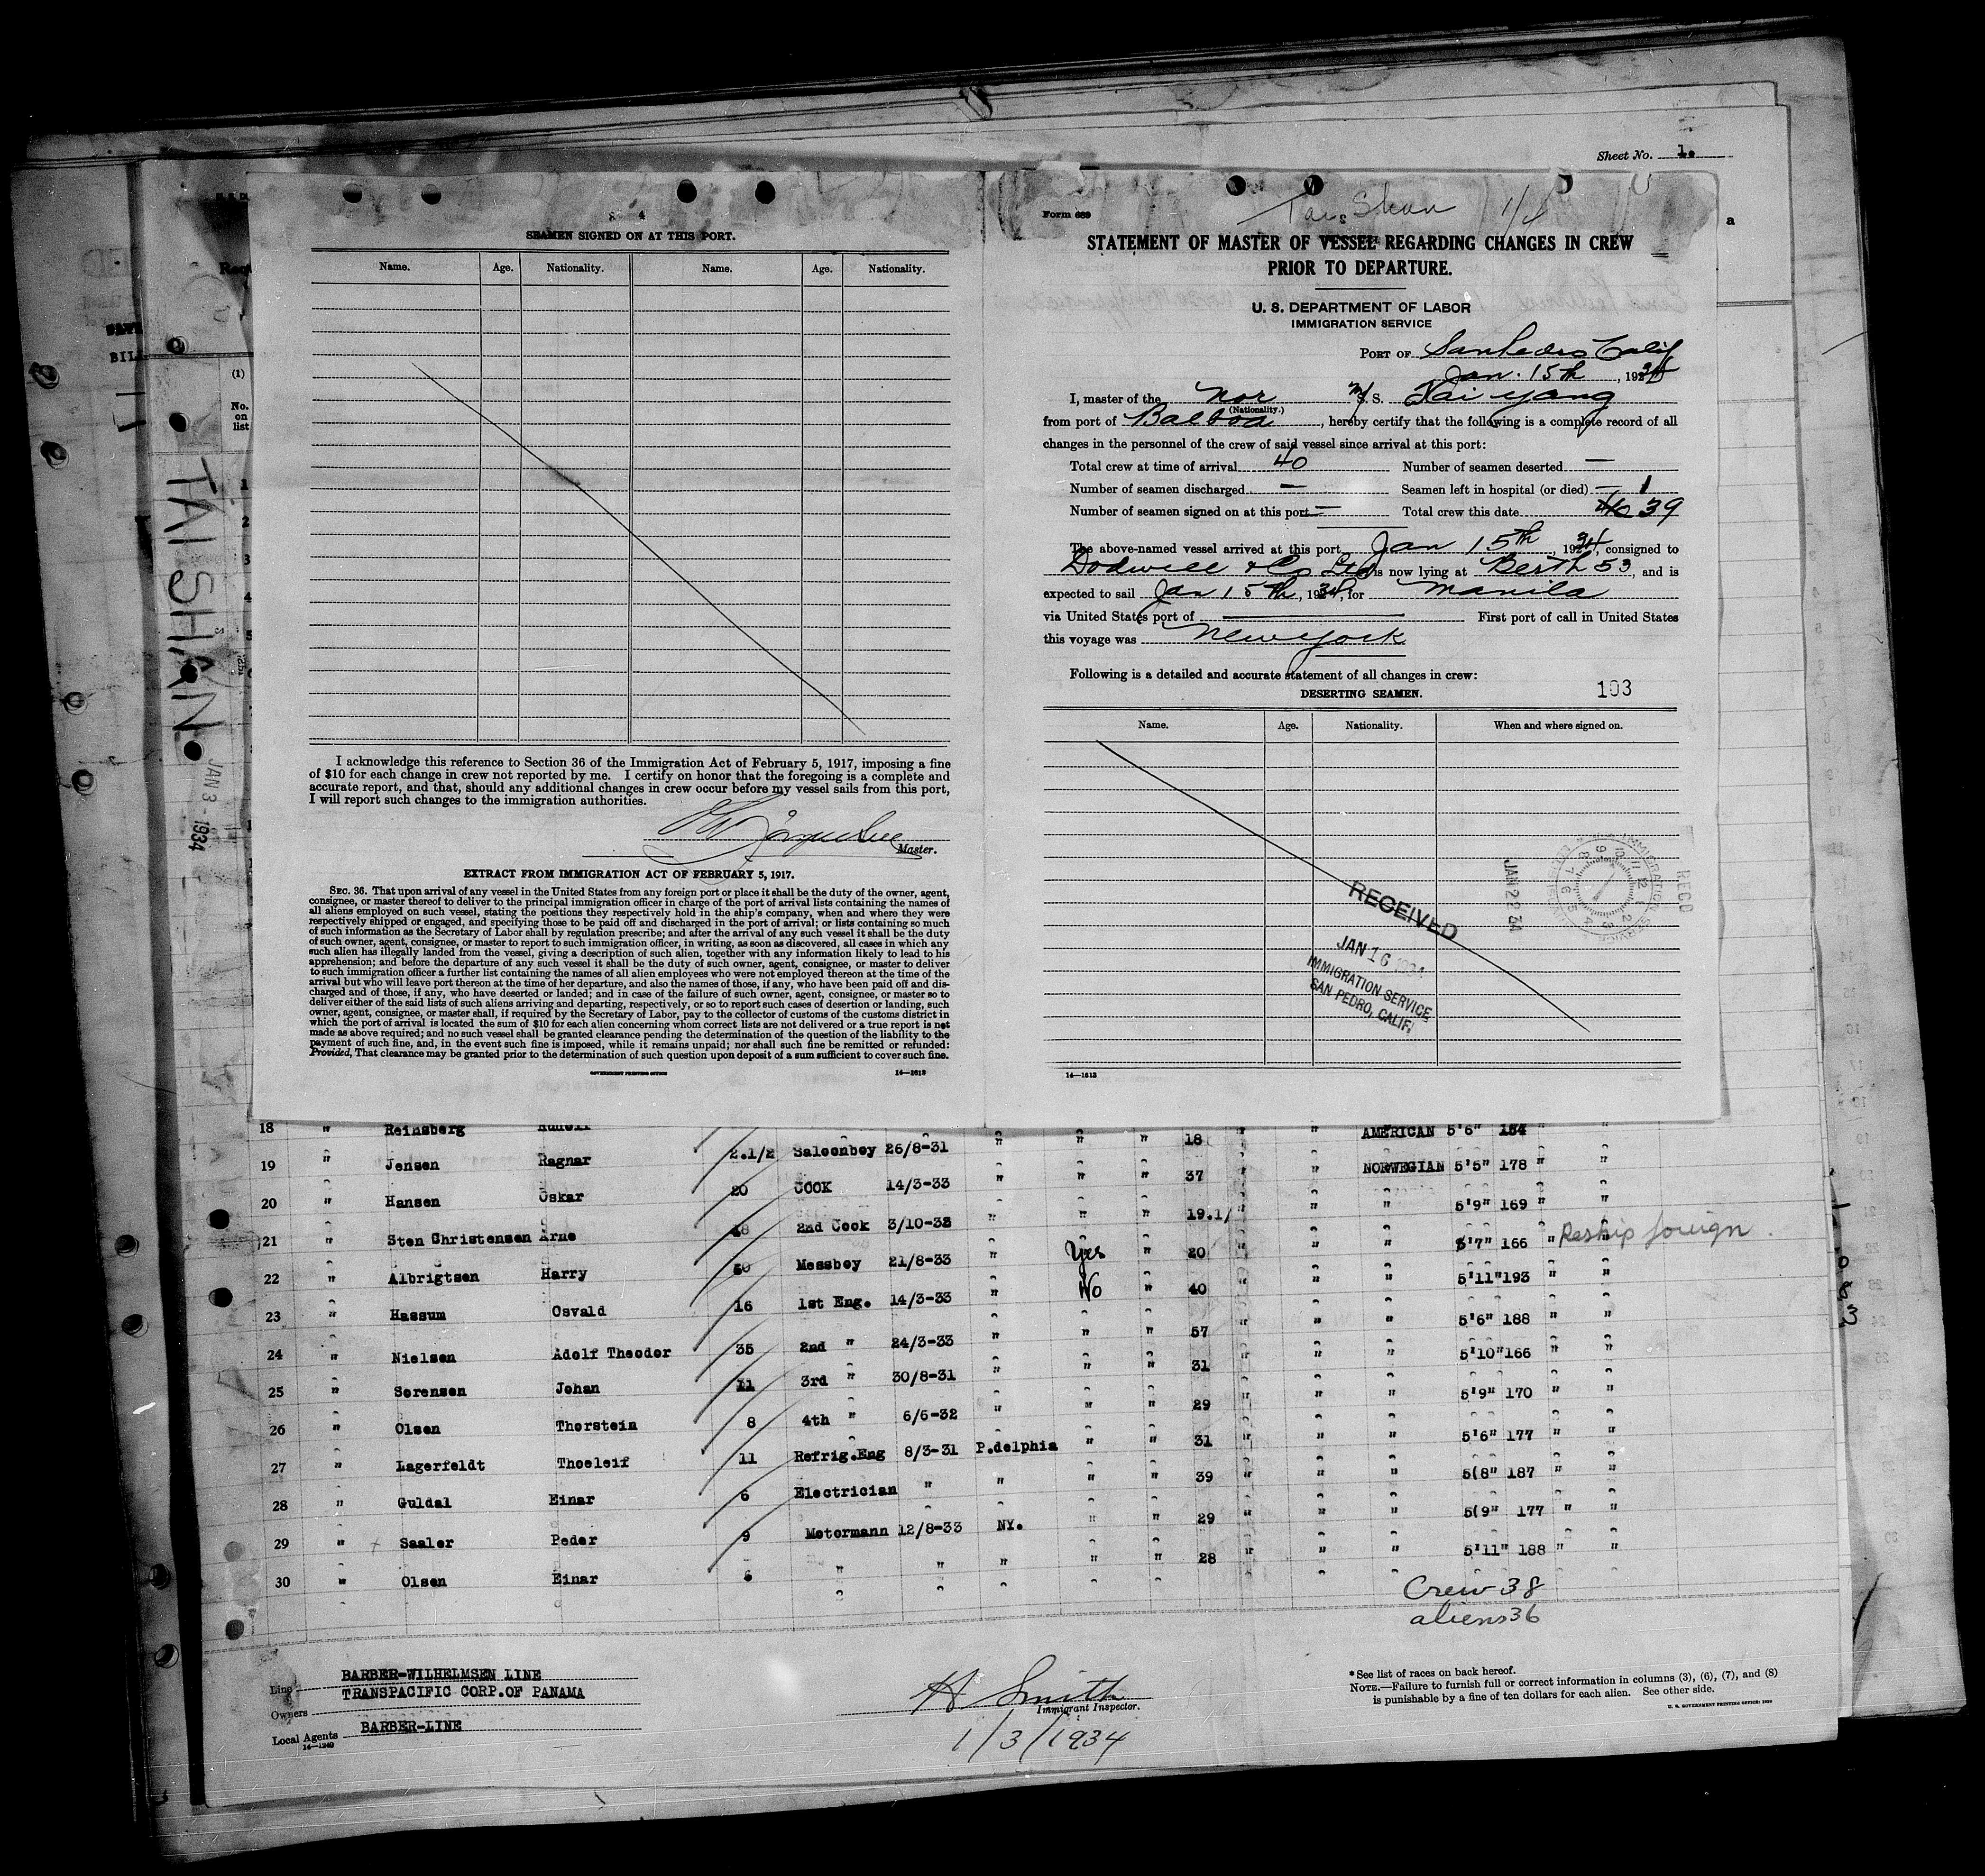 Sheet No. 1.
4
SEAMEN SIGNED ON AT THIS PORT.
Name. Age. Nationality. Name. Age. Nationality.
I acknowledge this reference to Section 36 of the Immigration Act of February 5, 1917, imposing a fine
of $10 for each change in crew not reported by me. I certify on honor that the foregoing is a complete and
accurate report, and that, should any additional changes in crew occur before my vessel sails from this port,
I will report such changes to the immigration authorities.
Master.
EXTRACT FROM IMMIGRATION ACT OF FEBRUARY 5, 1917.
SEC. 36. That upon arrival of any vessel in the United States from any foreign port or place it shall be the duty of the owner, agent,
consignee, or master thereof to deliver to the principal immigration officer in charge of the port of arrival lists containing the names of
all aliens employed on such vessel, stating the positions they respectively hold in the ship's company, when and where they were
respectively shipped or engaged, and specifying those to be paid off and discharged in the port of arrival; or lists containing so much
of such information as the Secretary of Labor shall by regulation prescribe; and after the arrival of any such vessel it shall be the duty
of such owner, agent, consignee, or master to report to such immigration officer, in writing, as soon as discovered, all cases in which any
such alien has illegally landed from the vessel, giving a description of such alien, together with any information likely to lead to his
apprehension; and before the departure of any such vessel it shall be the duty of such owner, agent, consignee, or master to deliver
to such immigration officer a further list containing the names of all alien employees who were not employed thereon at the time of the
arrival but who will leave port thereon at the time of her departure, and also the names of those, if any, who have been paid off and dis-
charged and of those, if any, who have deserted or landed; and in case of the failure of such owner, agent, consignee, or master so to
deliver either of the said lists of such aliens arriving and departing, respectively, or so to report such cases of desertion or landing, such
owner, agent, consignee, or master shall, if required by the Secretary of Labor, pay to the collector of customs of the customs district in
which the port of arrival is located the sum of $10 for each alien concerning whom correct lists are not delivered or a true report is not
made as above required; and no such vessel shall be granted clearance pending the determination of the question of the liability to the
payment of such fine, and, in the event such fine is imposed, while it remains unpaid; nor shall such fine be remitted or refunded:
Provided, That clearance may be granted prior to the determination of such question upon deposit of a sum sufficient to cover such fine.
GOVERNMENT PRINTING OFFICE 14—1613
Form 689
Tai Shan 1/4
STATEMENT OF MASTER OF VESSEL REGARDING CHANGES IN CREW
PRIOR TO DEPARTURE.
U. S. DEPARTMENT OF LABOR
IMMIGRATION SERVICE
PORT OF San Pedro Calif
Jan. 15th, 1934
I, master of the Nor M/S. S. Tai Yang
(Nationality.)
from port of Balboa, hereby certify that the following is a complete record of all
changes in the personnel of the crew of said vessel since arrival at this port:
Total crew at time of arrival 40 Number of seamen deserted —
Number of seamen discharged — Seamen left in hospital (or died) — 1
Number of seamen signed on at this port — Total crew this date 40 39
The above-named vessel arrived at this port Jan 15th, 1934, consigned to
Dodwell & Co Ltd is now lying at Berth 53, and is
expected to sail Jan 15th, 1934, for Manila
via United States port of — First port of call in United States
this voyage was New York
Following is a detailed and accurate statement of all changes in crew:
DESERTING SEAMEN. 103
Name. Age. Nationality. When and where signed on.
RECEIVED
JAN 16 1934
IMMIGRATION SERVICE
SAN PEDRO, CALIF.
REC'D
JAN 22 34
14—1613
TAI SHAN
JAN 3 - 1934
(1)
No. on list
18 " Reinsberg Rudolf 2.1/2 Saloonboy 26/8-31 " " " 18 " " AMERICAN 5'6" 154 " "
19 " Jensen Ragnar 20 COOK 14/3-33 " " " 37 " " NORWEGIAN 5'5" 178 " "
20 " Hansen Oskar 18 2nd Cook 3/10-32 " " " 19.1/ " " " 5'9" 169 " "
21 " Sten Christensen Arne Messboy 21/8-33 " Yes " 20 " " " 5'7" 166 " " Reship foreign.
22 " Albrigtsen Harry 16 1st Eng. 14/3-33 " No " 40 " " " 5'11" 193 " "
23 " Hassum Osvald 35 2nd " 24/3-33 " " " 57 " " " 5'6" 188 " "
24 " Nielsen Adolf Theodor 11 3rd " 30/8-31 " " " 31 " " " 5'10" 166 " "
25 " Sorensen Johan 8 4th " 6/6-32 " " " 29 " " " 5'9" 170 " "
26 " Olsen Thorstein 11 Refrig.Eng 8/3-31 P.delphia " " 31 " " " 5'6" 177 " "
27 " Lagerfeldt Thoeleif 6 Electrician " " " " 39 " " " 5(8" 187 " "
28 " Guldal Einar 9 Motormann 12/8-33 NY. " " 29 " " " 5(9" 177 " "
29 " Saaler Peder 6 " " " " " 28 " " " 5'11" 188 " "
30 " Olsen Einar
Crew 38
aliens 36
Line BARBER-WILHELMSEN LINE
Owners TRANSPACIFIC CORP.OF PANAMA
Local Agents BARBER-LINE
14—1240
H Smith
Immigrant Inspector.
1/3/1934
*See list of races on back hereof.
NOTE.—Failure to furnish full or correct information in columns (3), (6), (7), and (8)
is punishable by a fine of ten dollars for each alien. See other side.